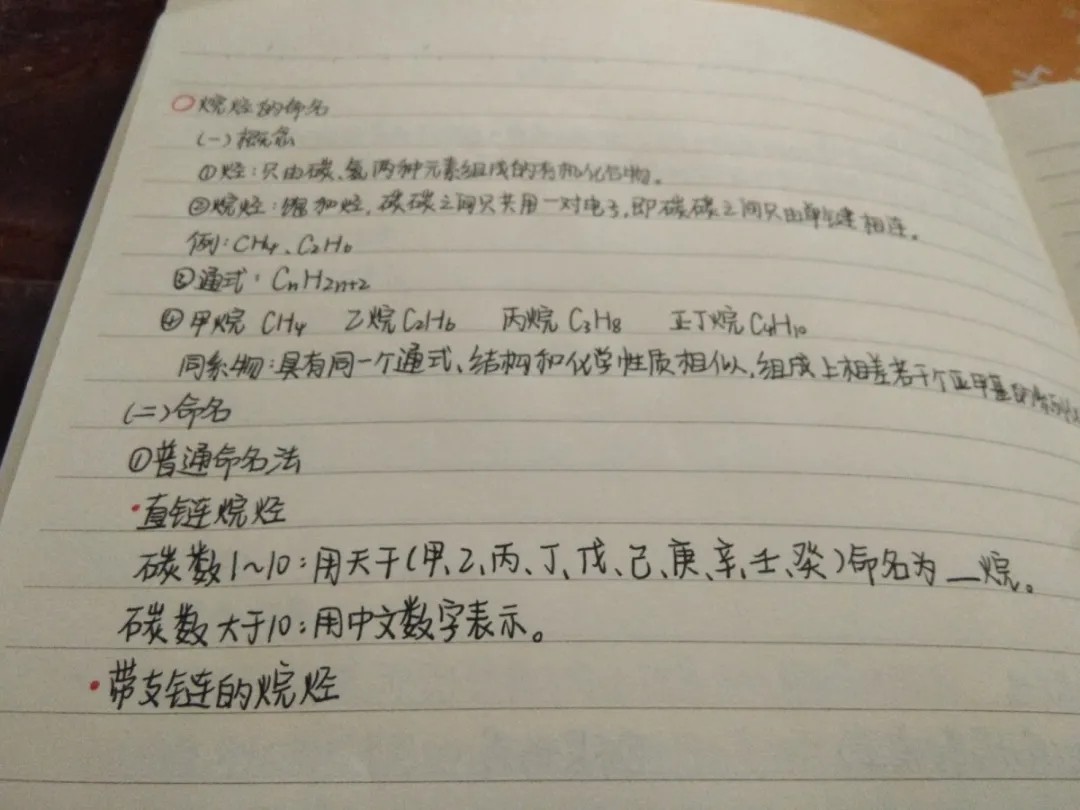 烷烃的命名
(一)概念
①烃:只由碳、氢两种元素组成的有机化合物。
②烷烃:饱和烃,碳碳之间只共用一对电子,即碳碳之间只由单键相连。
例:CH₄、C₂H₆
③通式:CₙH₂ₙ₊₂
④甲烷 CH₄ 乙烷 C₂H₆ 丙烷 C₃H₈ 正丁烷 C₄H₁₀
同系物:具有同一个通式、结构和化学性质相似,组成上相差若干个亚甲基的
(二)命名
①普通命名法
·直链烷烃
碳数1~10:用天干(甲、乙、丙、丁、戊、己、庚、辛、壬、癸)命名为__烷。
碳数大于10:用中文数字表示。
·带支链的烷烃